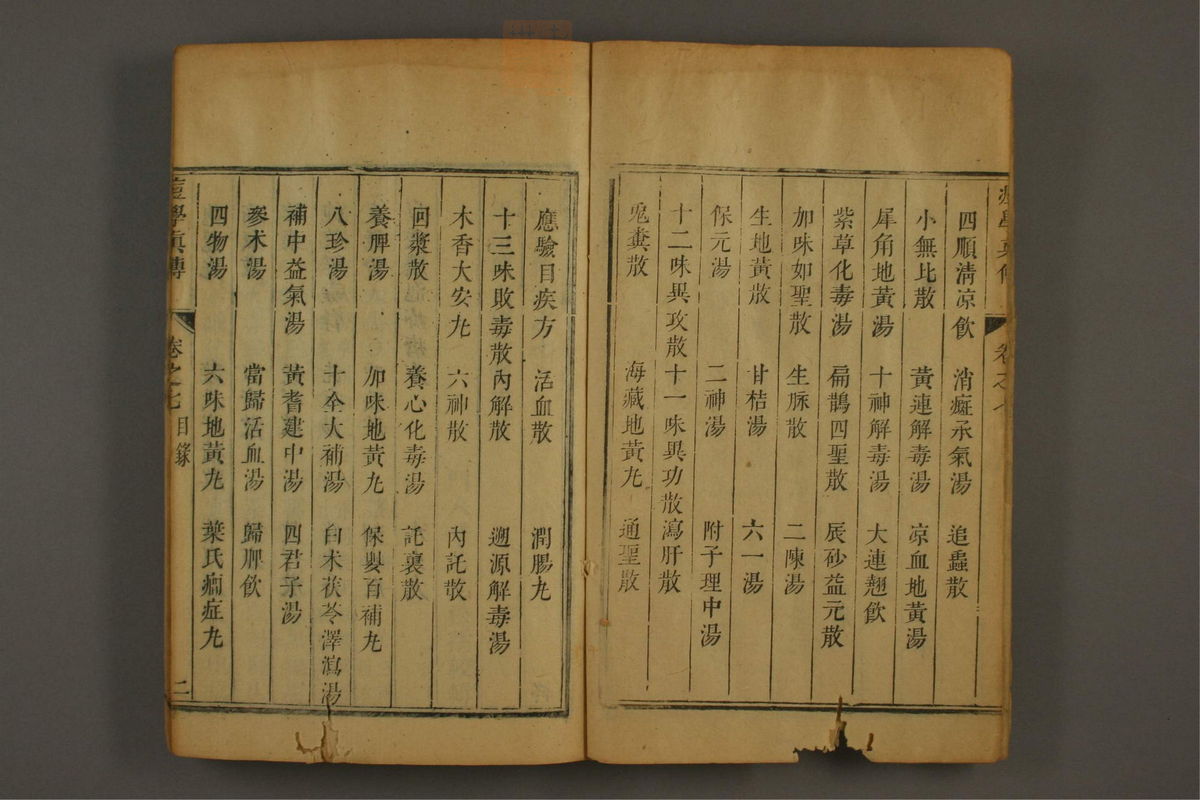 四順清凉飲　消癍承氣湯　追蟲散
小無比散　黃連解毒湯　凉血地黃湯
犀角地黃湯　十神解毒湯　大連翹飲
紫草化毒湯　扁鵲四聖散　辰砂益元散
加味如聖散　生脉散　二陳湯
生地黃散　甘桔湯　六一湯
保元湯　二神湯　附子理中湯
十二味異攻散　十一味異功散　瀉肝散
兎糞散　海藏地黃九　通聖散
應驗目疾方　活血散　潤腸九
十三味敗毒散　內解散　遡源解毒湯
木香大安九　六神散　內託散
回漿散　養心化毒湯　託裏散
養脾湯　加味地黃九　保嬰百補九
八珍湯　十全大補湯　白术茯苓澤瀉湯
補中益氣湯　黃耆建中湯　四君子湯
參术湯　當歸活血湯　歸脾飲
四物湯　六味地黃九　葉氏痼症九
學眞傳　卷之七　目錄　二